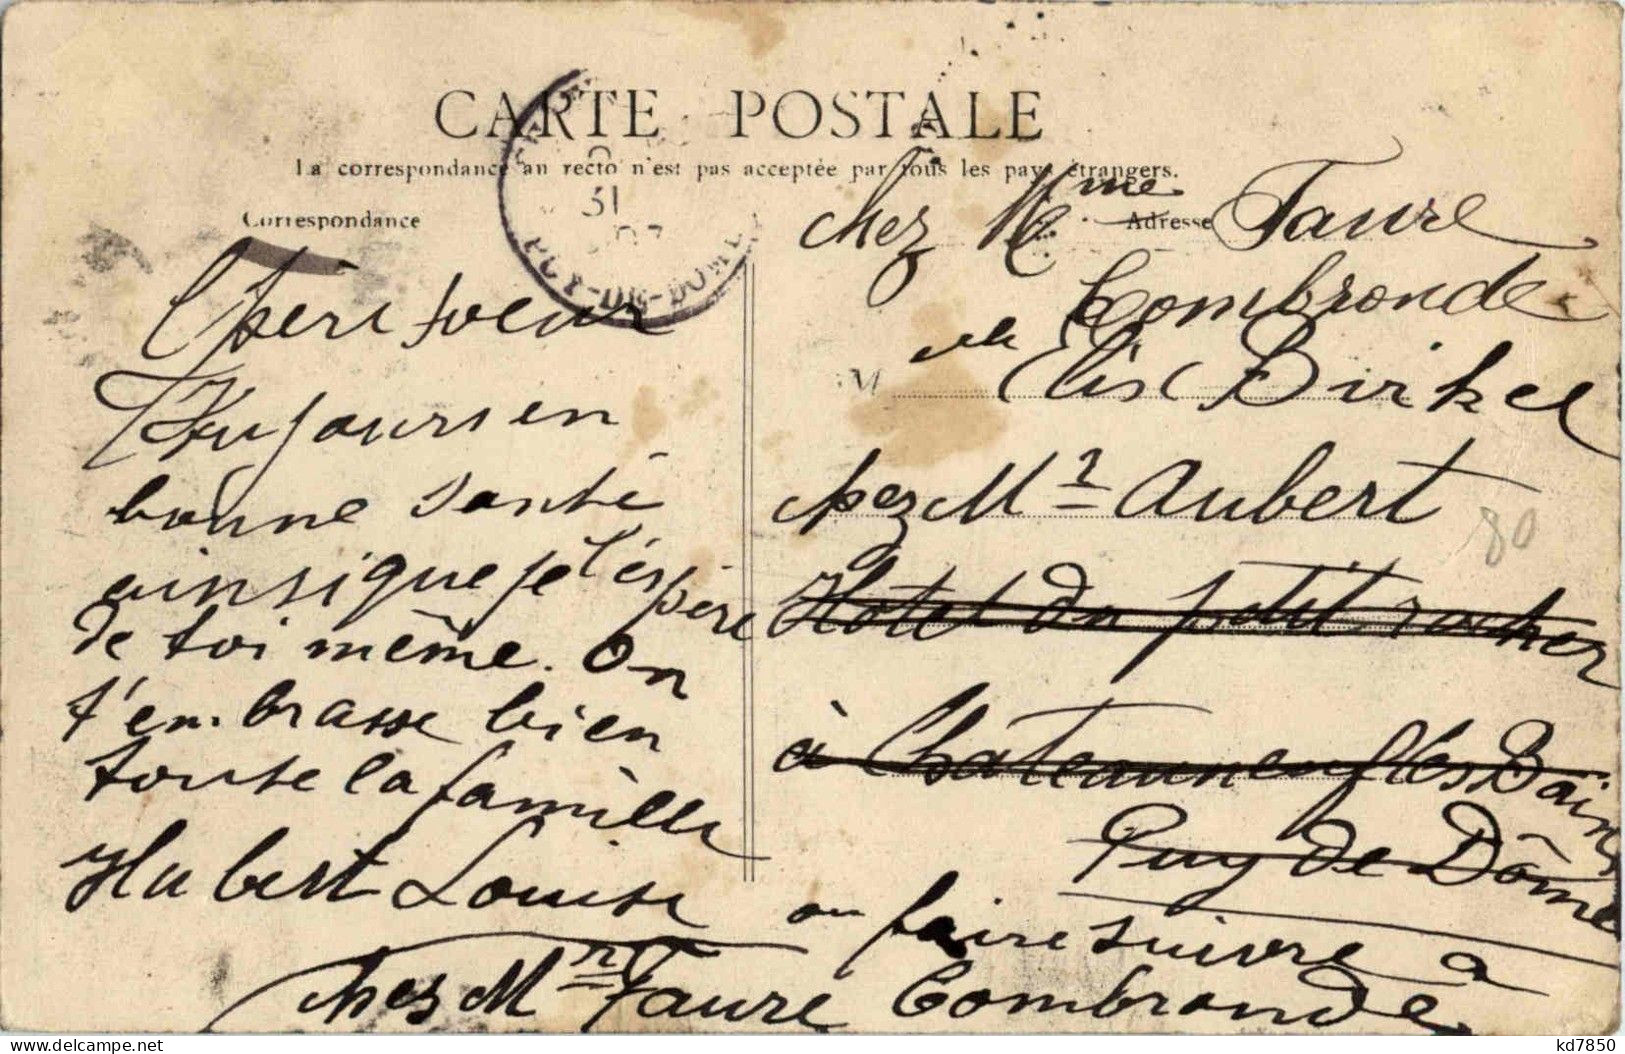 CARTE POSTALE
La correspondance au recto n'est pas acceptée par tous les pays étrangers.
Correspondance
Adresse
31
PUY-DE-DOME
Cheri soeur
Toujours en
bonne santé
ainsi que je l'éspère
de toi même. On
t'embrasse bien
toute la famille
Hubert Louise
chez Mme Faure
Combronde
M elle Elise Birkel
chez Mr Aubert
Hotel du petit rocher
à Chateauneuf les Bains
Puy de Dôme
ou faire suivre à
chez Mr Faure Combronde
80
kd7850